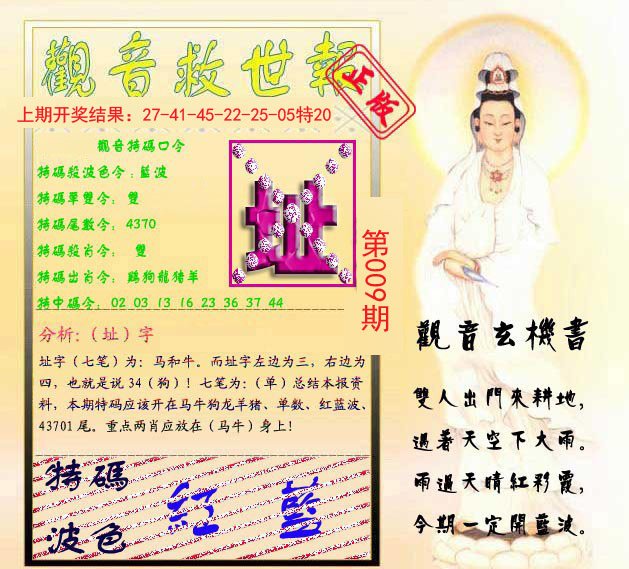 觀音救世報
正版
上期开奖结果：27-41-45-22-25-05特20
觀音特碼口令
特碼殺波色令：藍波
特碼單雙令： 雙
特碼尾數令： 4370
特碼殺肖令： 雙
特碼出肖令： 鷄狗龍猪羊
特中碼令： 02 03 13 16 23 36 37 44
址
第009期
分析:（址）字
址字（七笔）为：马和牛。而址字左边为三，右边为
四，也就是说 34（狗）！七笔为：（单）总结本报资
料，本期特码应该开在马牛狗龙羊猪、单数、红蓝波、
43701 尾。重点两肖应放在（马牛）身上！
特碼
波色
紅 藍
觀音玄機書
雙人出門來耕地，
過著天空下大雨。
雨過天晴紅彩霞，
今期一定開藍波。